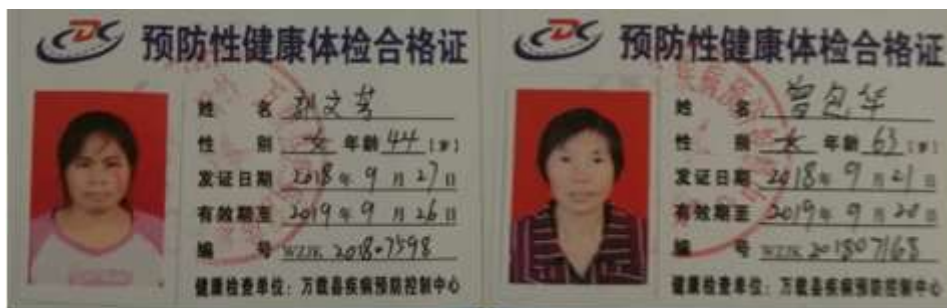 CDC 预防性健康体检合格证
姓 名 文芳
性 别 女 年龄 44 (岁)
发证日期 2018 年 9 月 27 日
有效期至 2019 年 9 月 26 日
编 号 WZJK 201807598
健康检查单位：万载县疾病预防控制中心
CDC 预防性健康体检合格证
姓 名 曾包华
性 别 女 年龄 63 (岁)
发证日期 2018 年 9 月 21 日
有效期至 2019 年 9 月 20 日
编 号 WZJK 201807168
健康检查单位：万载县疾病预防控制中心